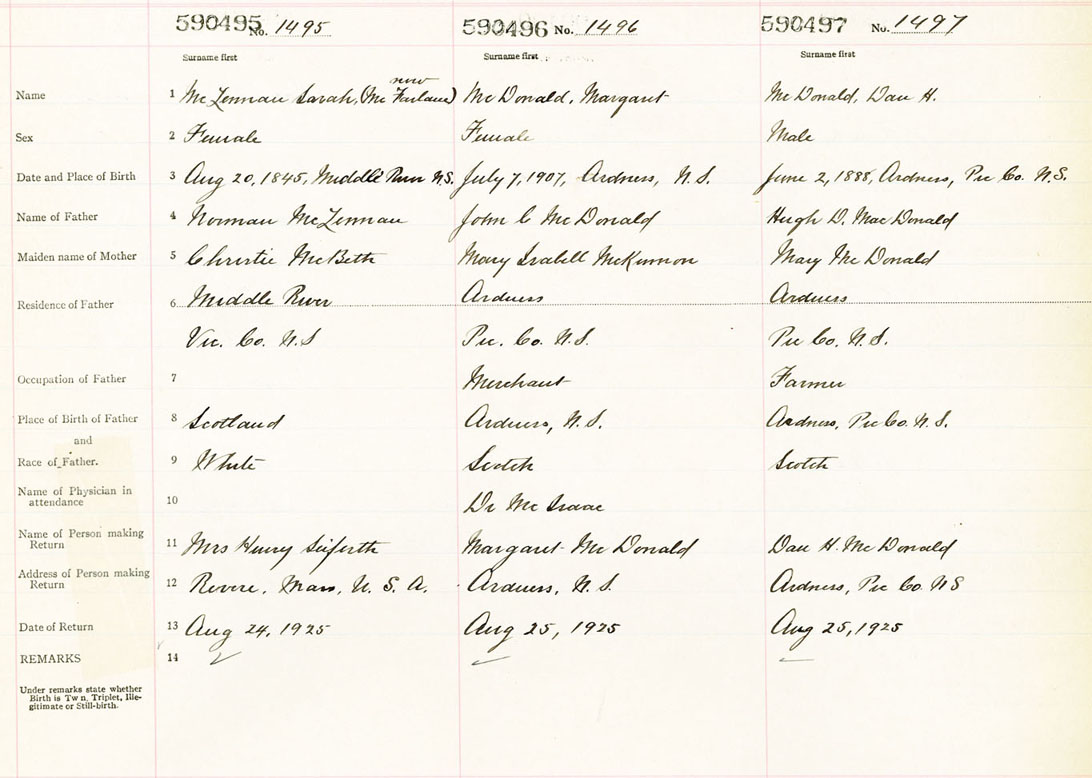 590495 No. 1495 590496 No. 1496 590497 No. 1497
Surname first Surname first Surname first
now
Name 1 McLennan Sarah, (McFarland) McDonald, Margaret McDonald, Dan H.
Sex 2 Female Female Male
Date and Place of Birth 3 Aug 20, 1845, Middle River N.S. July 7, 1907, Ardness, N.S. June 2, 1888, Ardness, Pic Co. N.S.
Name of Father 4 Norman McLennan John C McDonald Hugh D. MacDonald
Maiden name of Mother 5 Christie McBeth Mary Isabell McKinnon Mary McDonald
Residence of Father 6 Middle River Ardness Ardness
Vic. Co. N.S Pic. Co. N.S. Pic Co. N.S.
Occupation of Father 7 Merchant Farmer
Place of Birth of Father 8 Scotland Ardness, N.S. Ardness, Pic Co. N.S.
and
Race of Father. 9 White Scotch Scotch
Name of Physician in
attendance 10 Dr McIsaac
Name of Person making
Return 11 Mrs Henry Seiferth Margaret McDonald Dan H. McDonald
Address of Person making
Return 12 Revere, Mass, U.S.A. Ardness, N.S. Ardness, Pic Co. NS
Date of Return 13 Aug 24, 1925 Aug 25, 1925 Aug 25, 1925
REMARKS 14
Under remarks state whether
Birth is Tw n, Triplet, Ille-
gitimate or Still-birth.